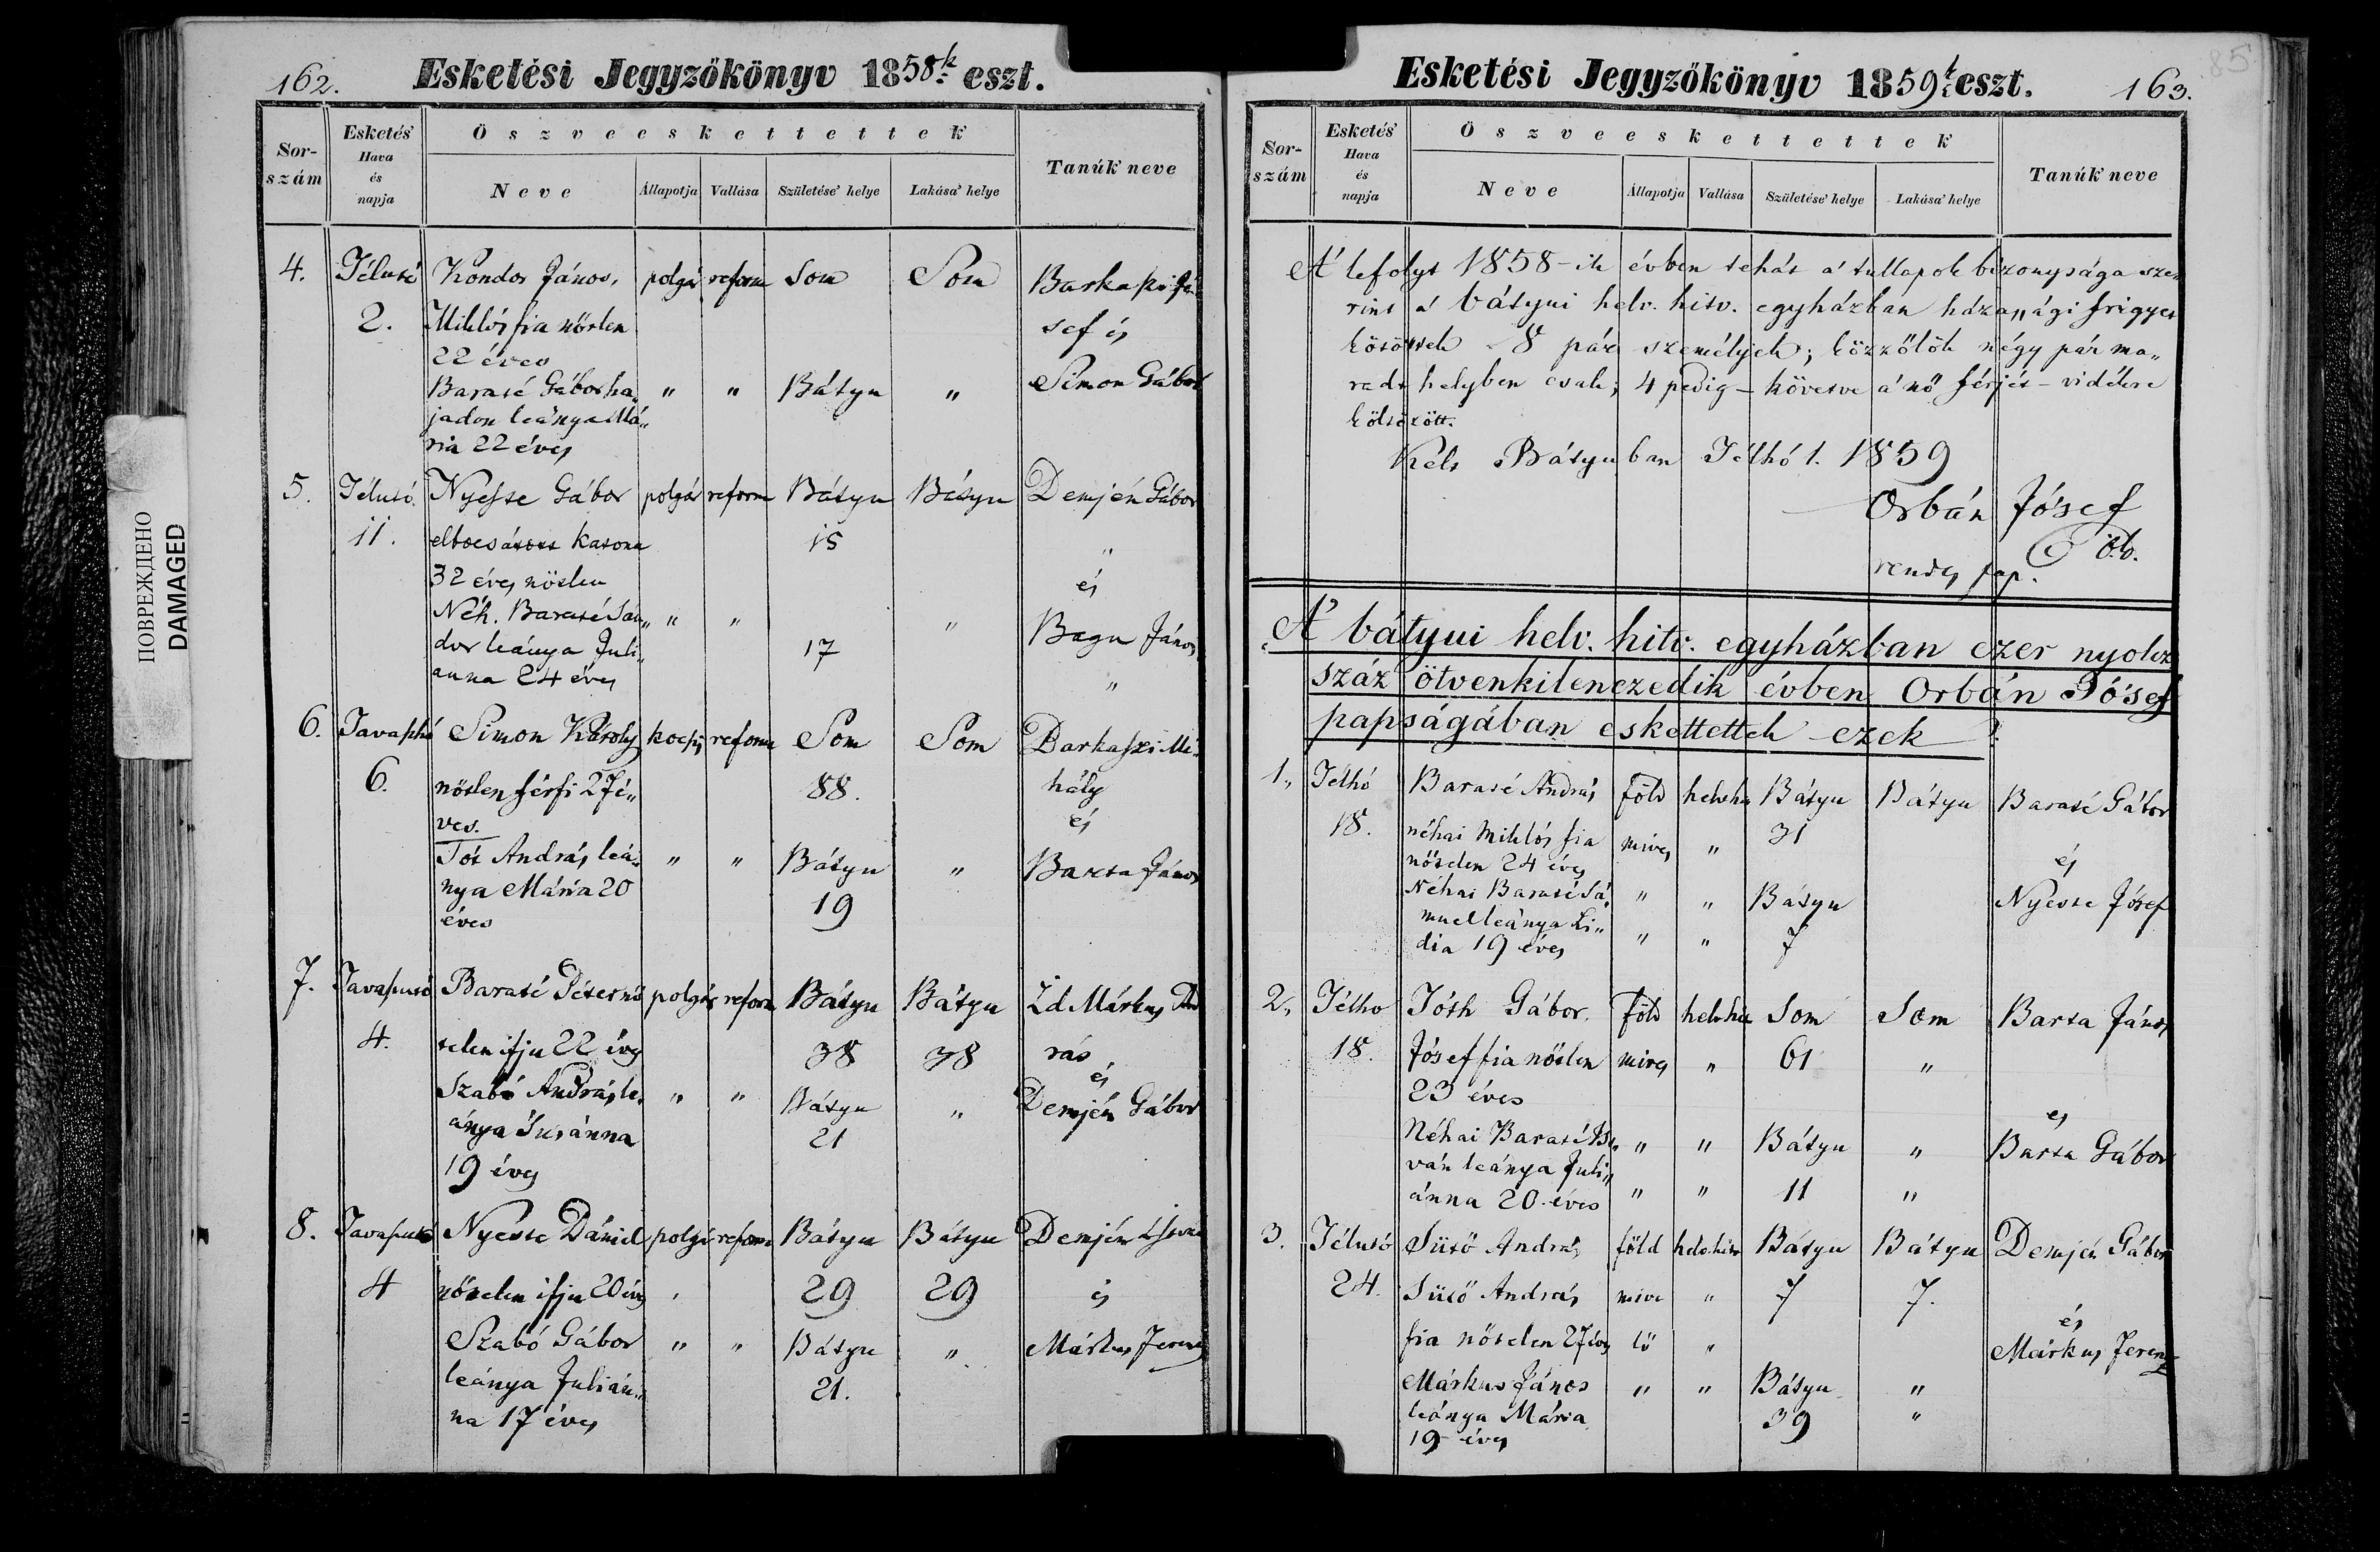 162.
Esketési Jegyzőkönyv 1858k eszt.
Sor-szám
Esketés' Hava és napja
Öszveeskettettek
Neve
Állapotja
Vallása
Születése' helye
Lakása' helye
Tanúk neve
4. Télutó Kondor János, polgár reform Som Som Barkaszi Jó
2. Miklós fia nőtlen sef és
22 éves
Baraté Gábor ha „ „ Bátyu „ Simon Gábor
jadon leánya Má„
ria 22 éves
5. Télutó Nyeste Gábor polgár reform Bátyu Bátyu Demjén Gábor
11. elbocsátott katona 15 „
32 éves nőtlen és
Néh. Baraté Sán„ „ „ „ Bagu János
dor leánya Juli„ 17
anna 24 éves „
6. Tavaszhó Simon Károly kocsis reform Som Som Barkaszi Mi„
6. nőtlen férfi 27 é„ 88. hály
ves. és
Tót András leá„ „ „ Bátyu „ Barta János
nya Mária 20 19
éves
7. Tavaszutó Baraté Péter nő polgár reform Bátyu Bátyu Id Márkus And
4. telen ifju 22 éves 38 38 rás
és
Szabó András le„ „ „ Bátyu „ Demjén Gábor
ánya Susánna 21
19 éves
8. Tavaszutó Nyeste Dániel polgár reform Bátyu Bátyu Demjén István
4 nőtelen ifju 20 éves 29 29 és
Szabó Gábor „ „ Bátyu „ Márkus Ferencz
leánya Julián„ 21.
na 17 éves
ПОВРЕЖДЕНО
DAMAGED
Esketési Jegyzőkönyv 1859k eszt.
163.
85
Sor-szám
Esketés' Hava és napja
Öszveeskettettek
Neve
Állapotja
Vallása
Születése' helye
Lakása' helye
Tanúk neve
A' lefolyt 1858-ik évben tehát a' tullapok bizonysága sze„
rint a' bátyui helv. hitv. egyházban házassági frigyet
kötöttek 8 pár személyek; közzőlök négy pár ma„
radt helyben csak; 4 pedig – követve a' nő férjét – vidékre
költözött.
Kelt Bátyuban Télhó 1. 1859
Orbán Jósef
rendes pap.
A' bátyui helv. hitv. egyházban ezer nyolcz
száz ötvenkilenczedik évben Orbán Jósef
papságában eskettettek ezek
1., Télhó Baraté András föld helv. hit Bátyu Bátyu Baraté Gábor
18. néhai Miklós fia mives „ 31
nőtelen 24 éves és
Néhai Baraté Sá„ „ „ Bátyu Nyeste Jósef
muel leánya Li„
dia 19 éves „ „ 7
2., Télhó Tóth Gábor. föld helv. hit Som Som Barta János
18. Jósef fia nőtlen mives „ 61 „
23 éves és
Néhai Baraté Ist„ „ „ Bátyu „ Barta Gábor
ván leánya Juli„
ánna 20 éves „ „ 11 „
3. Télutó Sütő András föld helv. hitv Bátyu Bátyu Demjén Gábor
24. Sütő András mive „ 7 7.
fia nőtelen 27 éves lő „ és
Márkus Ferencz
Márkus János „ „ Bátyu „
leánya Mária 39 „
19 éves